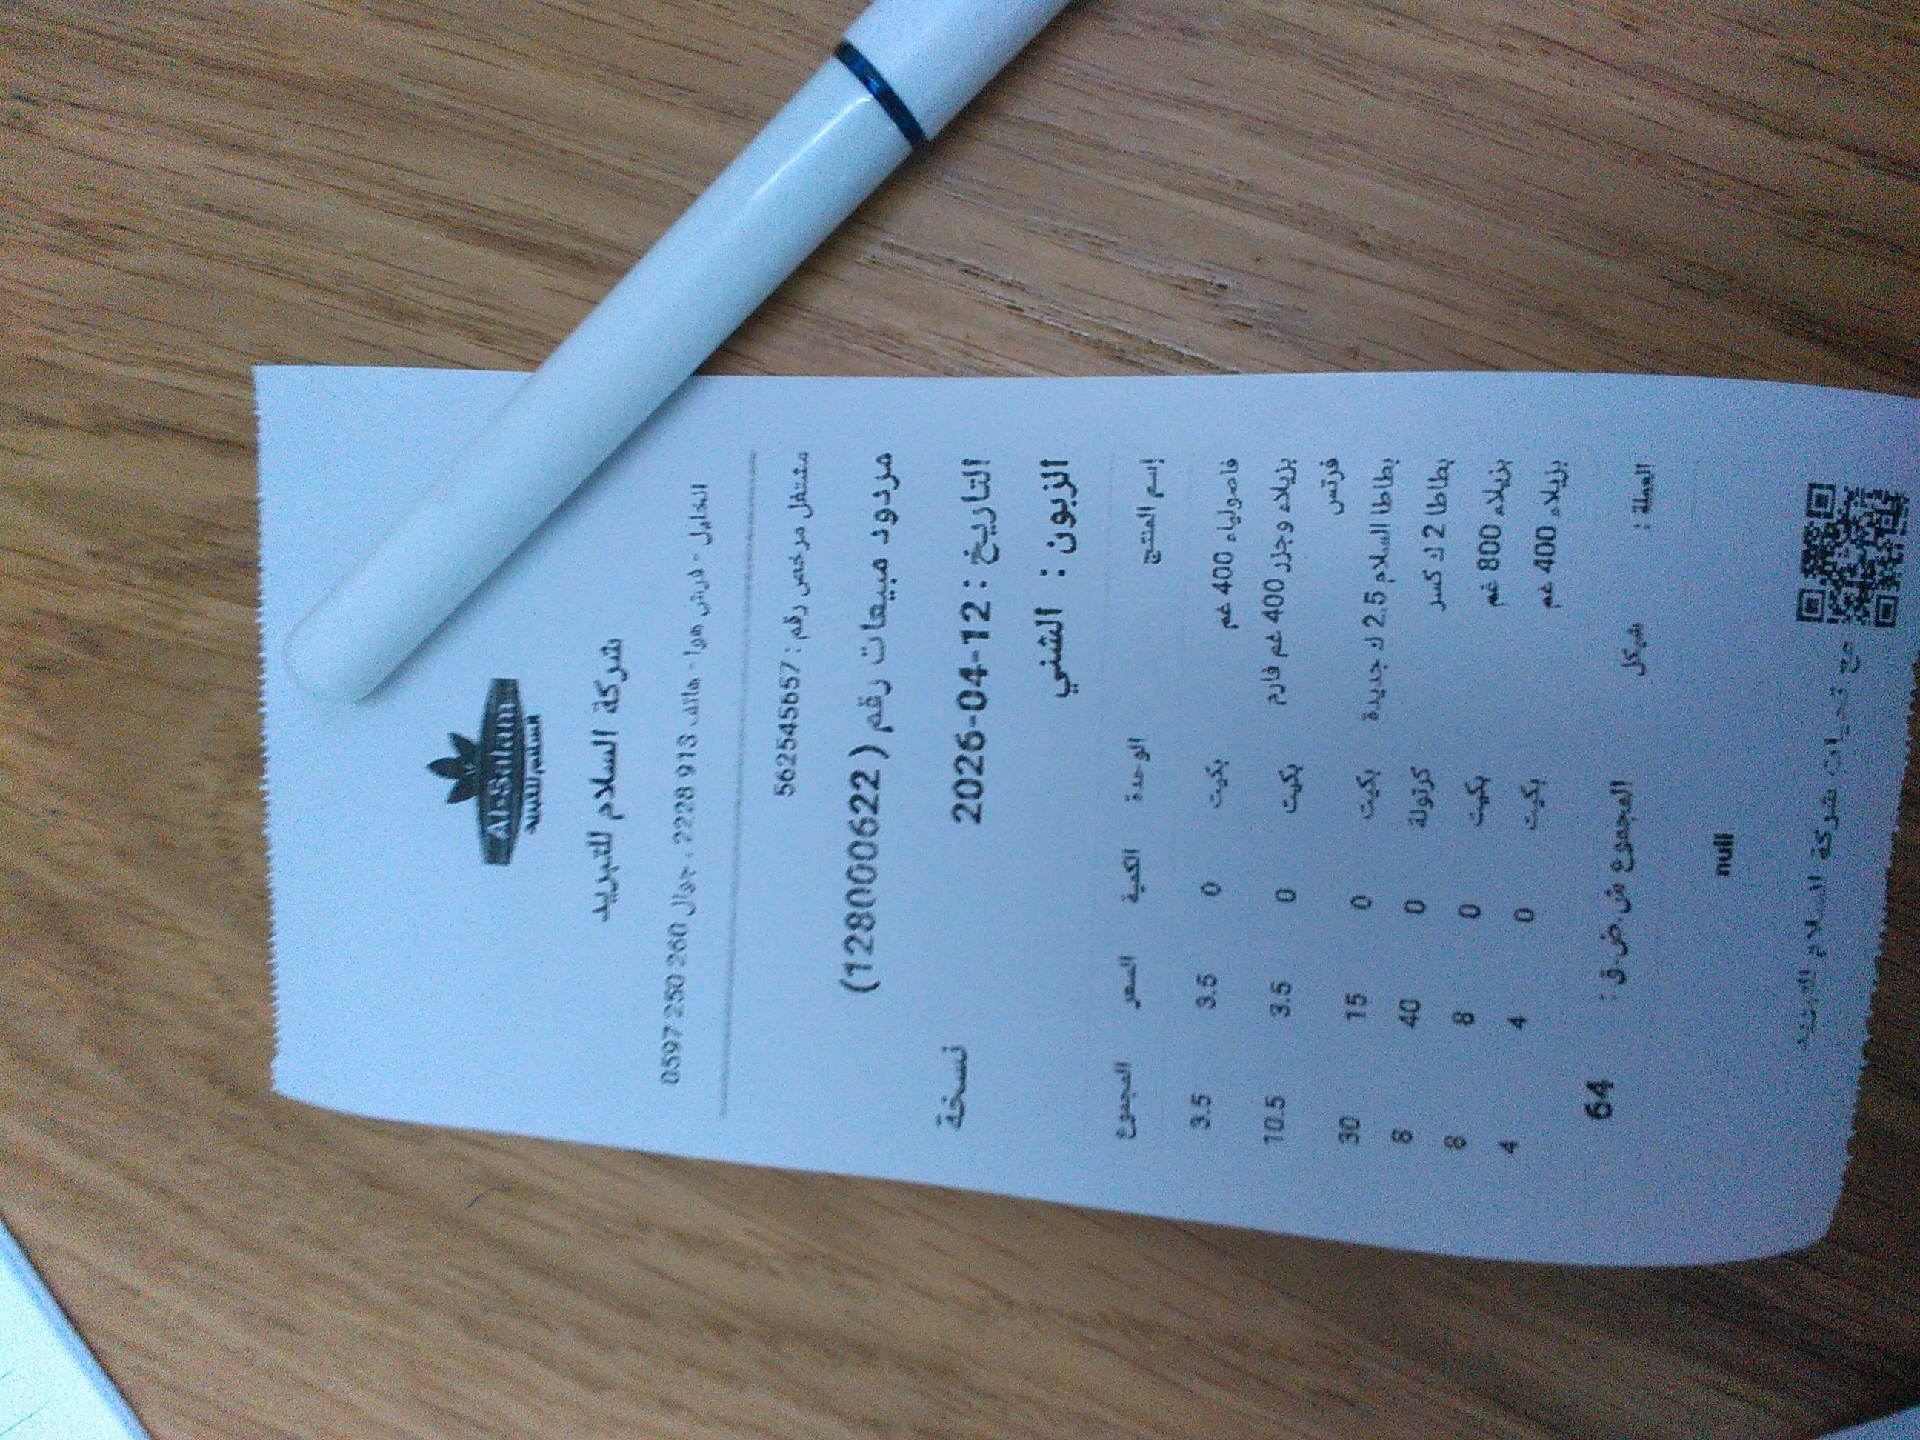 Al-Salam
السلام للتبريد
شركة السلام للتبريد
الخليل - فرش هوا - هاتف 913 2228 ، جوال 260 250 0597
مشتغل مرخص رقم : 562545657
مردود مبيعات رقم ( 128000622)
التاريخ : 2026-04-12 نسخة
الزبون : الشني
إسم المنتج الوحدة الكمية السعر المجموع
فاصولياء 400 غم بكيت 0 3.5 3.5
بزيلاء وجزر 400 غم فارم بكيت 0 3.5 10.5
فرتس
بطاطا السلام 2.5 ك جديدة بكيت 0 15 30
بطاطا 2 ك كسر كرتولة 0 40 8
بزيلاء 800 غم بكيت 0 8 8
بزيلاء 400 غم بكيت 0 4 4
العملة : شيكل المجموع ش.ض.ق : 64
null
مع تحيات شركة السلام للتبريد